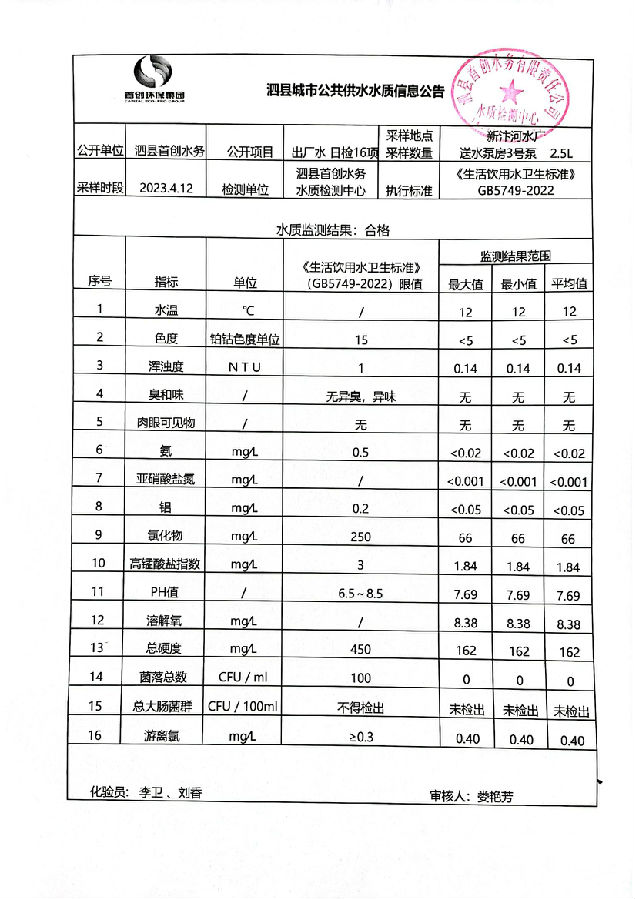 首创环保集团
CAPITAL ECO-PRO GROUP
泗县城市公共供水水质信息公告
泗县首创水务有限责任公司
水质检测中心
公开单位 泗县首创水务 公开项目 出厂水 日检16项 采样地点 采样数量 新汴河水厂 送水泵房3号泵 2.5L
采样时段 2023.4.12 检测单位 泗县首创水务 水质检测中心 执行标准 《生活饮用水卫生标准》 GB5749-2022
水质监测结果：合格
序号 指标 单位 《生活饮用水卫生标准》（GB5749-2022）限值 监测结果范围
最大值 最小值 平均值
1 水温 ℃ / 12 12 12
2 色度 铂钴色度单位 15 <5 <5 <5
3 浑浊度 NTU 1 0.14 0.14 0.14
4 臭和味 / 无异臭，异味 无 无 无
5 肉眼可见物 / 无 无 无 无
6 氨 mg/L 0.5 <0.02 <0.02 <0.02
7 亚硝酸盐氮 mg/L / <0.001 <0.001 <0.001
8 铝 mg/L 0.2 <0.05 <0.05 <0.05
9 氯化物 mg/L 250 66 66 66
10 高锰酸盐指数 mg/L 3 1.84 1.84 1.84
11 PH值 / 6.5~8.5 7.69 7.69 7.69
12 溶解氧 mg/L / 8.38 8.38 8.38
13 总硬度 mg/L 450 162 162 162
14 菌落总数 CFU / ml 100 0 0 0
15 总大肠菌群 CFU / 100ml 不得检出 未检出 未检出 未检出
16 游离氯 mg/L ≥0.3 0.40 0.40 0.40
化验员：李卫、刘香 审核人：娄艳芳